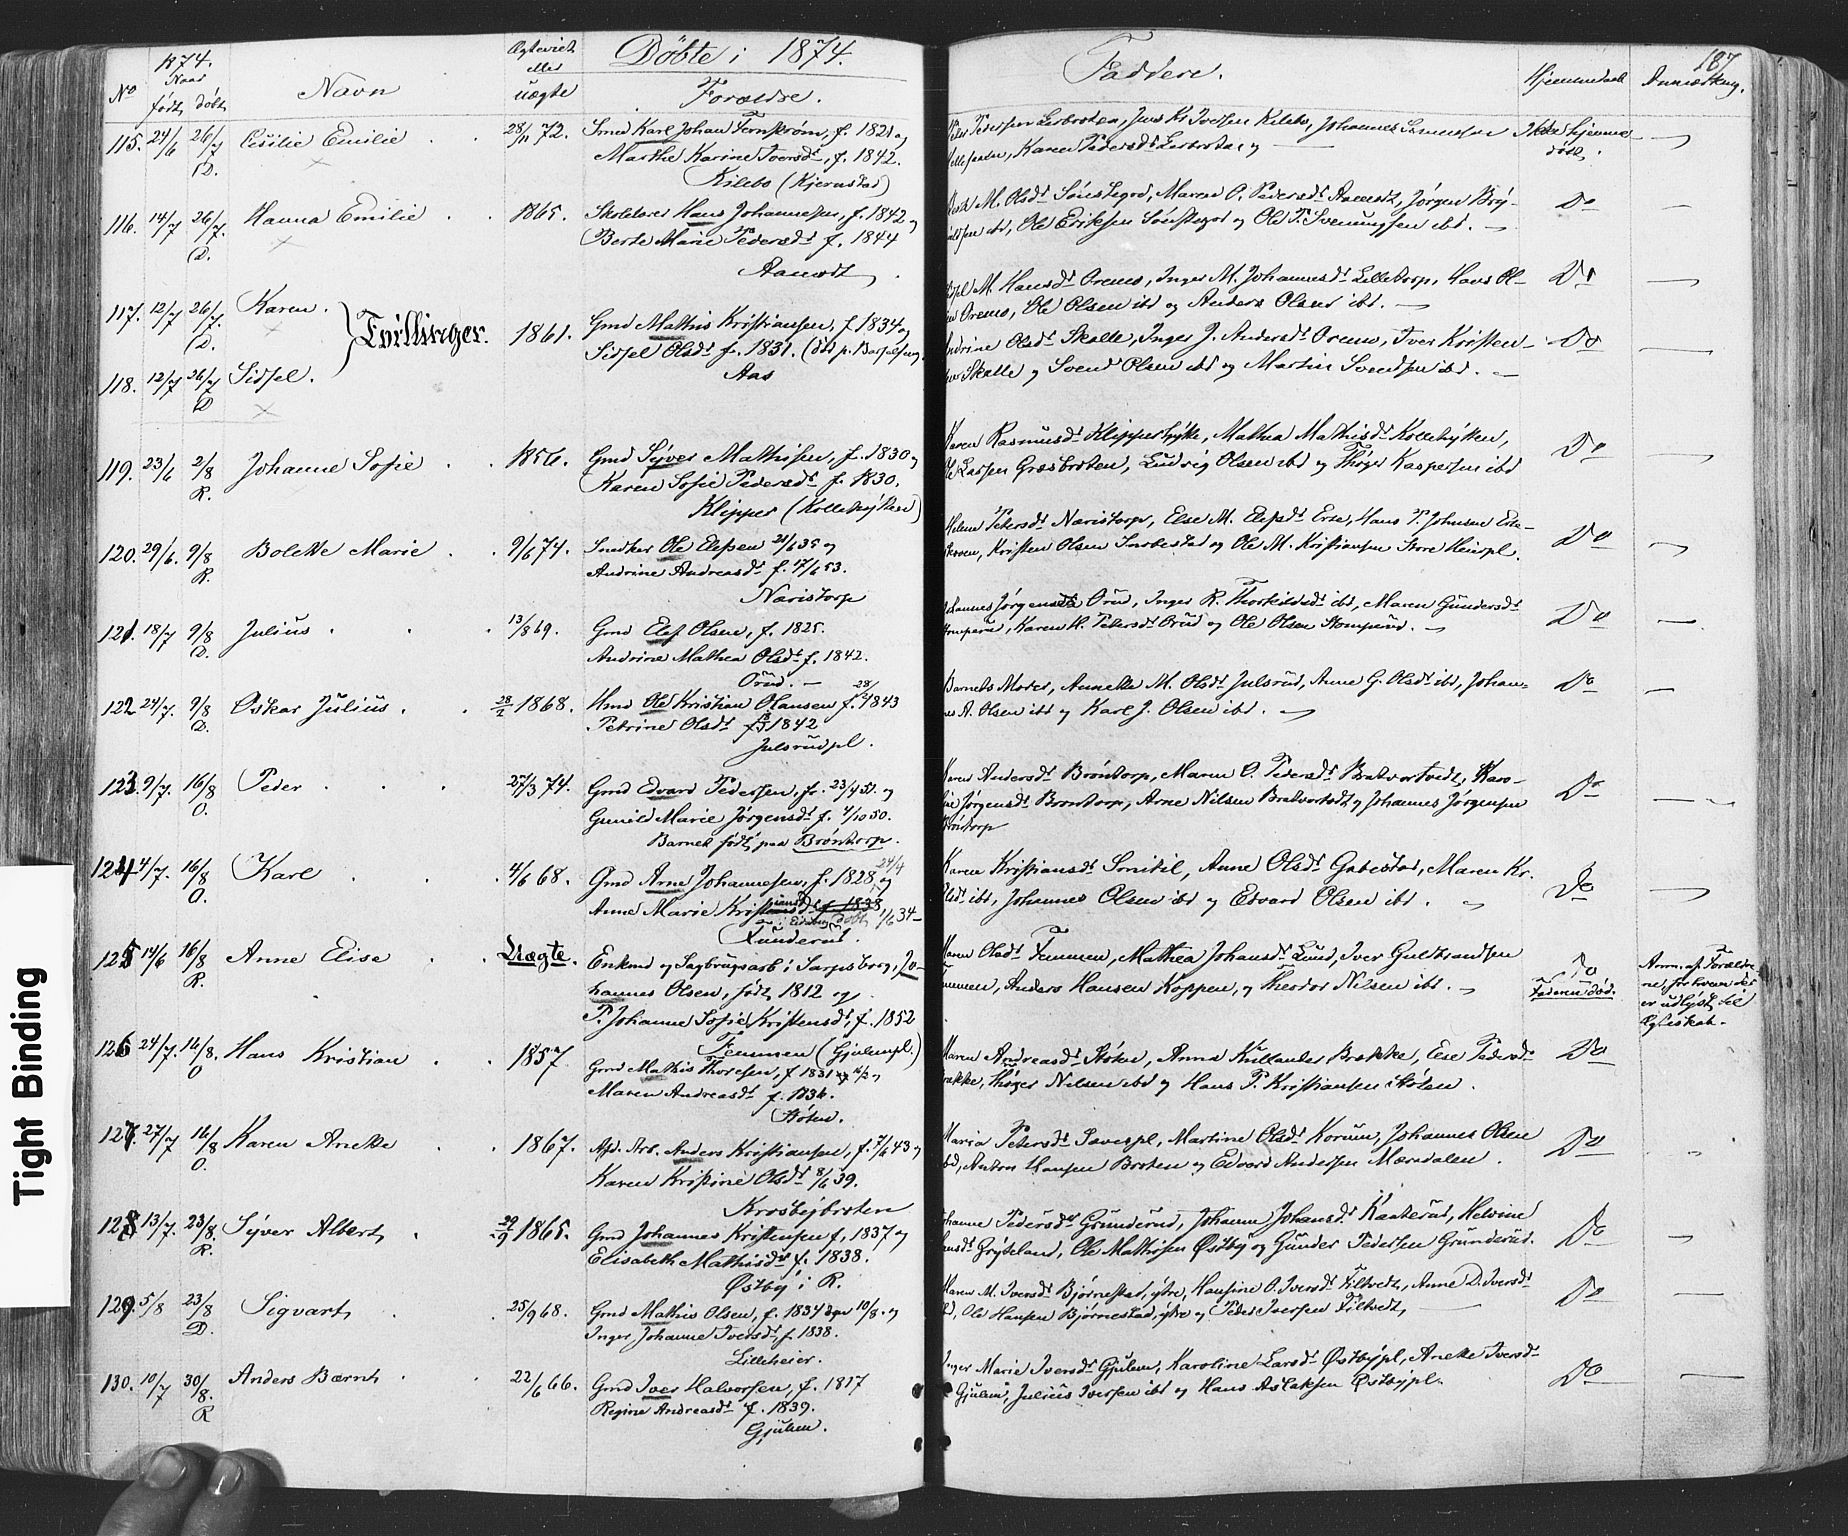 1874.
Døbte i 1874.
Faddere.
187
No
Naar
født, døbt,
Navn
Ægteviet
eller
uægte
Forældre.
Hjemmedøbt
Anmærkng.
115. 24/6 26/7 D. Cecilie Emilie 28/11 72. Smed Karl Johan Fernstrøm, f. 1821 og
Marthe Karine Iversdt, f. 1842.
Kilebo (Kjernstad)
Pedersen Lerbroten, Jens Kr. Iversen Kilebo, Johannes
Karen Pedersdt Lerbroten og
Ikke hjemme-
døbt.
116. 14/7 26/7. D. Hanna Emilie 1865. Skolelærer Hans Johannesen, f. 1842 og
Berte Marie Pedersdt f. 1844
Aamodt
M. Olsdt Sønstegod, Maren O. Pedersdt Aamodt, Jørgen Bry-
ibd, Ole Eriksen Sønstegod og Ole P. Svenungsen ibd.
Do
117. 12/7 26/7. D. Karen.
Tvillinger.
1861. Gmd Mathis Kristiansen, f. 1834 og
Sidsel Olsdt f. 1831. (død p. Barselseng.
Aas
M. Hansdt Oremo, Inger M. Johannesdt Lilletorp, Hans Ol-
Oremo, Ole Olsen ibd og Anders Olsen ibd.
Do
118. 12/7 26/7 D Sidsel.
Olsdt Skolle, Inger J. Andersdt Oremo, Iver Kristen-
Skolle og Svend Olsen ibd og Martin Svendsen ibd.
Do
119. 23/6 2/8 R. Johanne Sofie 1856. Gmd Syver Mathisen, f. 1830 og
Karen Sofie Pedersdt f. 1830.
Klipper (Kollehytten)
Karen Rasmusdt Klipperhytte, Mathea Mathisdt Kollehytten,
Larsen Græsbroten, Ludvig Olsen ibd og Thøger Kaspersen ibd
Do
120. 29/6. 9/8 R. Bolette Marie 9/6 74. Snedker Ole Elefsen 21/6 35 og
Andrine Andreasdt f. 17/6 53.
Naristorp
Helene Petersdt Naristorp, Else M. Elefsdt Erse, Hans P. Johnsen
Kristen Olsen Snobestad og Ole M. Kristiansen Store Heierpl.
Do
121. 18/7 9/8 D. Julius. 13/8 69. Gmd Elef Olsen, f. 1825.
Andrine Mathea Olsdt f. 1842.
Orud.
Johannes Jørgensen Orud, Inger R. Thorkildsdt ibd, Maren Gundersdt
Stomperud, Karen H. Petersdt Orud og Ole Olsen Stomperud.
Do
122 24/7. 9/8 D. Oskar Julius. 28/2 1868. Hmd Ole Kristian Olausen f. 28/2 1843
Petrine Olsdt f. 1842
Julsrudpl.
Barnets Moder, Annette M. Olsdt Julsrud, Anne G. Olsdt ibd, Johan-
nes A. Olsen ibd og Karl J. Olsen ibd.
Do
123. 9/7. 16/8 O. Peder 27/3 74. Gmd Edvard Pedersen, f. 23/4 51. og
Gunild Marie Jørgensdt f. 4/10 50.
Barnet født paa Brøntorp.
Maren Andersdt Brøntorp, Maren O. Pedersdt Bratvortvedt, Karo-
line Jørgensdt Brøntorp, Arne Nilsen Bratvortvedt og Johannes Jørgensen
Brøntorp
Do
124 4/7. 16/8 O. Karl 4/6 68. Gmd Arne Johannesen, f. 1828, 24/4 og
Anne Marie Kristiansdt f. 1838 1/6 34
Tunderud.
Karen Kristiansdt Smitil, Anne Olsdt Gabestad, Maren Kr.
Olsdt ibd, Johannes Olsen ibd og Edvard Olsen ibd.
Do
125 14/6 16/8 R. Anne Elise Uægte. Enkmd og Sagbrugsarb. i Sarpsborg, Jo-
hannes Olsen, født 1812 og
P. Johanne Sofie Kristensdt, f. 1852
Femmen (Gjulempl.)
Maren Olsdt Femmen, Mathea Johansdt Lund, Iver Guldbrandsen
Femmen, Anders Hansen Koppen, og Theodor Nilsen ibd.
Do
Faderen død.
Anm. af Foræld-
ne, forhvem der
er udlyst til
Ægteskab.
126 24/7. 16/8. O Hans Kristian 1857. Gmd Mathis Thoresen, f. 1831 og
Maren Andreasdt f. 1836.
Støten.
Maren Andreasdt Støten, Anna Kullander Brække, Else Pedersdt
Brække, Thøger Nilsen ibd og Hans P. Kristiansen Støten.
Do
127. 27/7 16/8 O. Karen Anette 1867. Afsk. Arb. Anders Kristiansen, f. 7/6 43 og
Karen Kristine Olsdt 8/6 39.
Krosbybroten
Maria Petersdt Savespl, Martine Olsdt Korum, Johannes Olsen
ibd, Anton Hansen Broten og Edvard Andersen Mæredalen.
Do
128 13/7. 23/8. R. Syver Albert, 29/9 1865. Gmd Johannes Kristensen f. 1837 og
Elisabeth Mathisdt f. 1838.
Østby i R.
Johanne Pedersdt Grunderud, Johanne Johansdt Kaaterud, Helvine
Hansdt Gryteland, Ole Mathisen Østby og Gunder Pedersen Grunderud.
Do
129. 5/8 23/8 D. Sigvart, 25/9 68. Gmd Mathis Olsen, f. 1834 10/8. og
Inger Johanne Iversdt, f. 1838.
Lilleheier.
Maren M. Iversdt Bjørnestad, ytre, Hansine O. Iversdt Filtvedt, Anne D. Iversdt
ibd, Ole Hansen Bjørnestad, ytre og Peder Iversen Filtvedt,
Do
130. 10/7 30/8. R Anders Bernt 22/6 66. Gmd Iver Halvorsen, f. 1817
Regine Andreasdt f. 1839.
Gjulem.
Inger Marie Iversdt Gjulem, Karoline Larsdt Østbypl, Anette Iversdt
Gjulem, Julius Iversen ibd og Hans Aslaksen Østbypl.
Do
Tight Binding